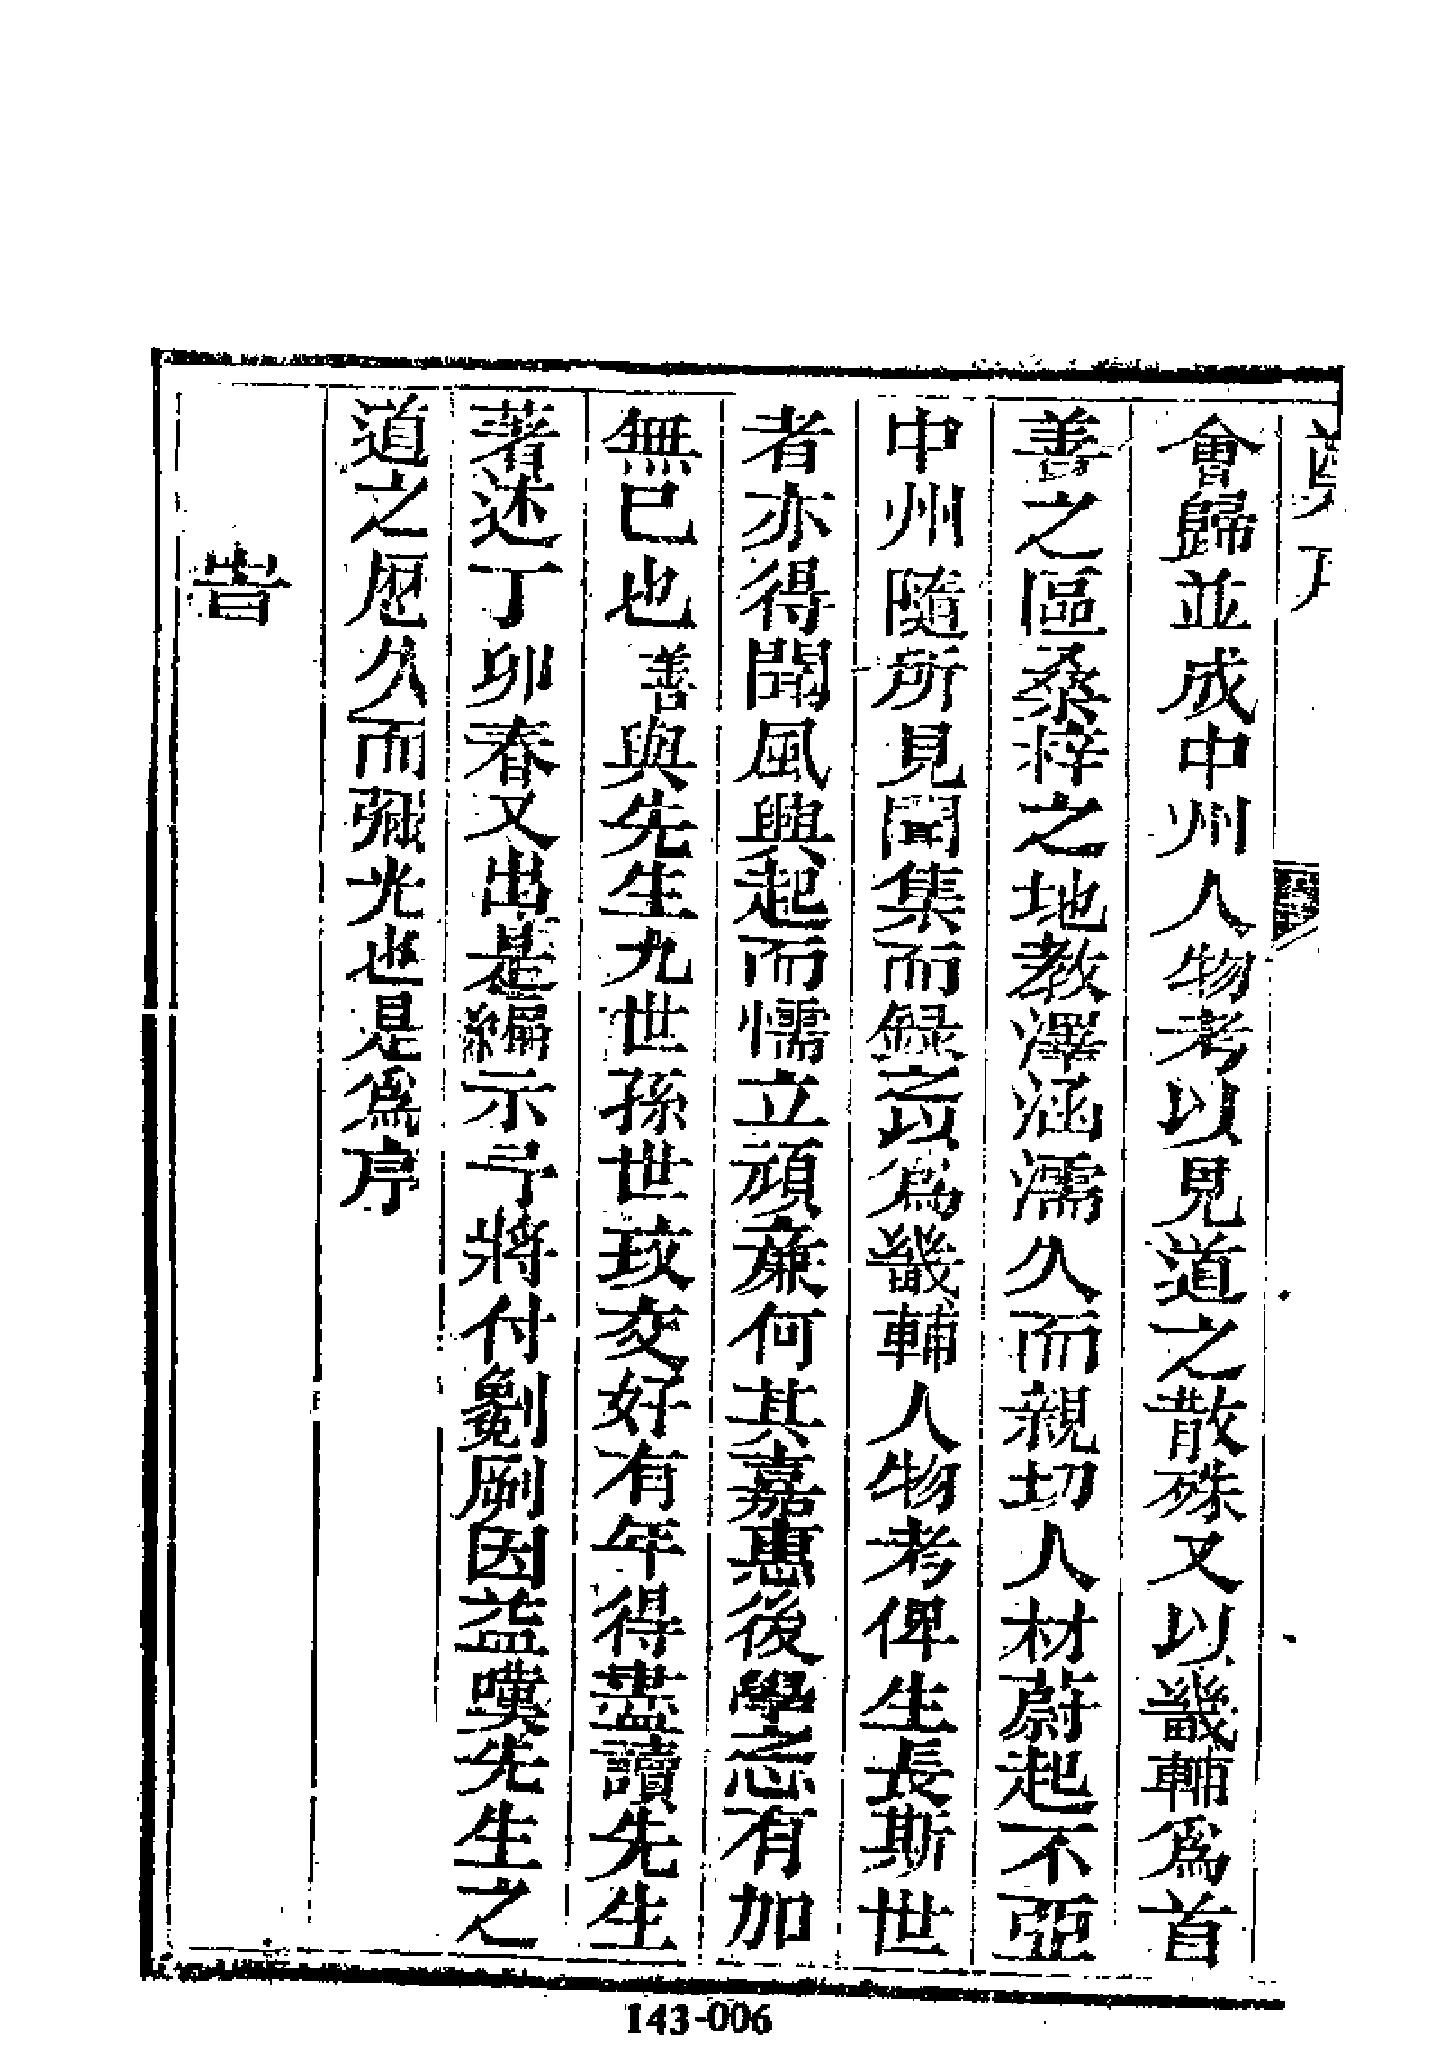 會歸並成中州人物考以見道之散殊又以畿輔爲首
善之區桑梓之地教澤涵濡久而親切人材蔚起不亞
中州隨所見聞集而録之以爲畿輔人物考俾生長斯世
者亦得聞風興起而懦立頑廉何其嘉惠後學之忘有加
無已也善與先生九世孫世玟交好有年得盡讀先生
著述丁卯春又出是編示予將付剞劂因益嘆先生之
道之歷久而彌光也是爲序
旹
143-006